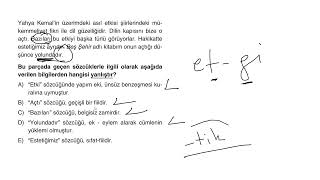 Yahya Kemal'in üzerimizdeki asıl etkisi şiirlerindeki mü-
kemmeliyet fikri ile dil güzelliğidir. Dilin kapısını bize o
açtı. Bazıları bu etkiyi başka türlü görüyorlar. Hakikatte
estetiğimiz ayrıdır. Beş Şehir adlı kitabım onun açtığı dü-
şünce yolundadır.
Bu parçada geçen sözcüklerle ilgili olarak aşağıda
verilen bilgilerden hangisi yanlıştır?
A) "Etki" sözcüğünde yapım eki, ünsüz benzeşmesi ku-
ralına uymuştur.
B) "Açtı" sözcüğü, geçişli bir fiildir.
C) "Bazıları" sözcüğü, belgisiz zamirdir.
D) "Yolundadır" sözcüğü, ek - eylem alarak cümlenin
yüklemi olmuştur.
E) "Estetiğimiz" sözcüğü, sıfat-fiildir.
et - gi